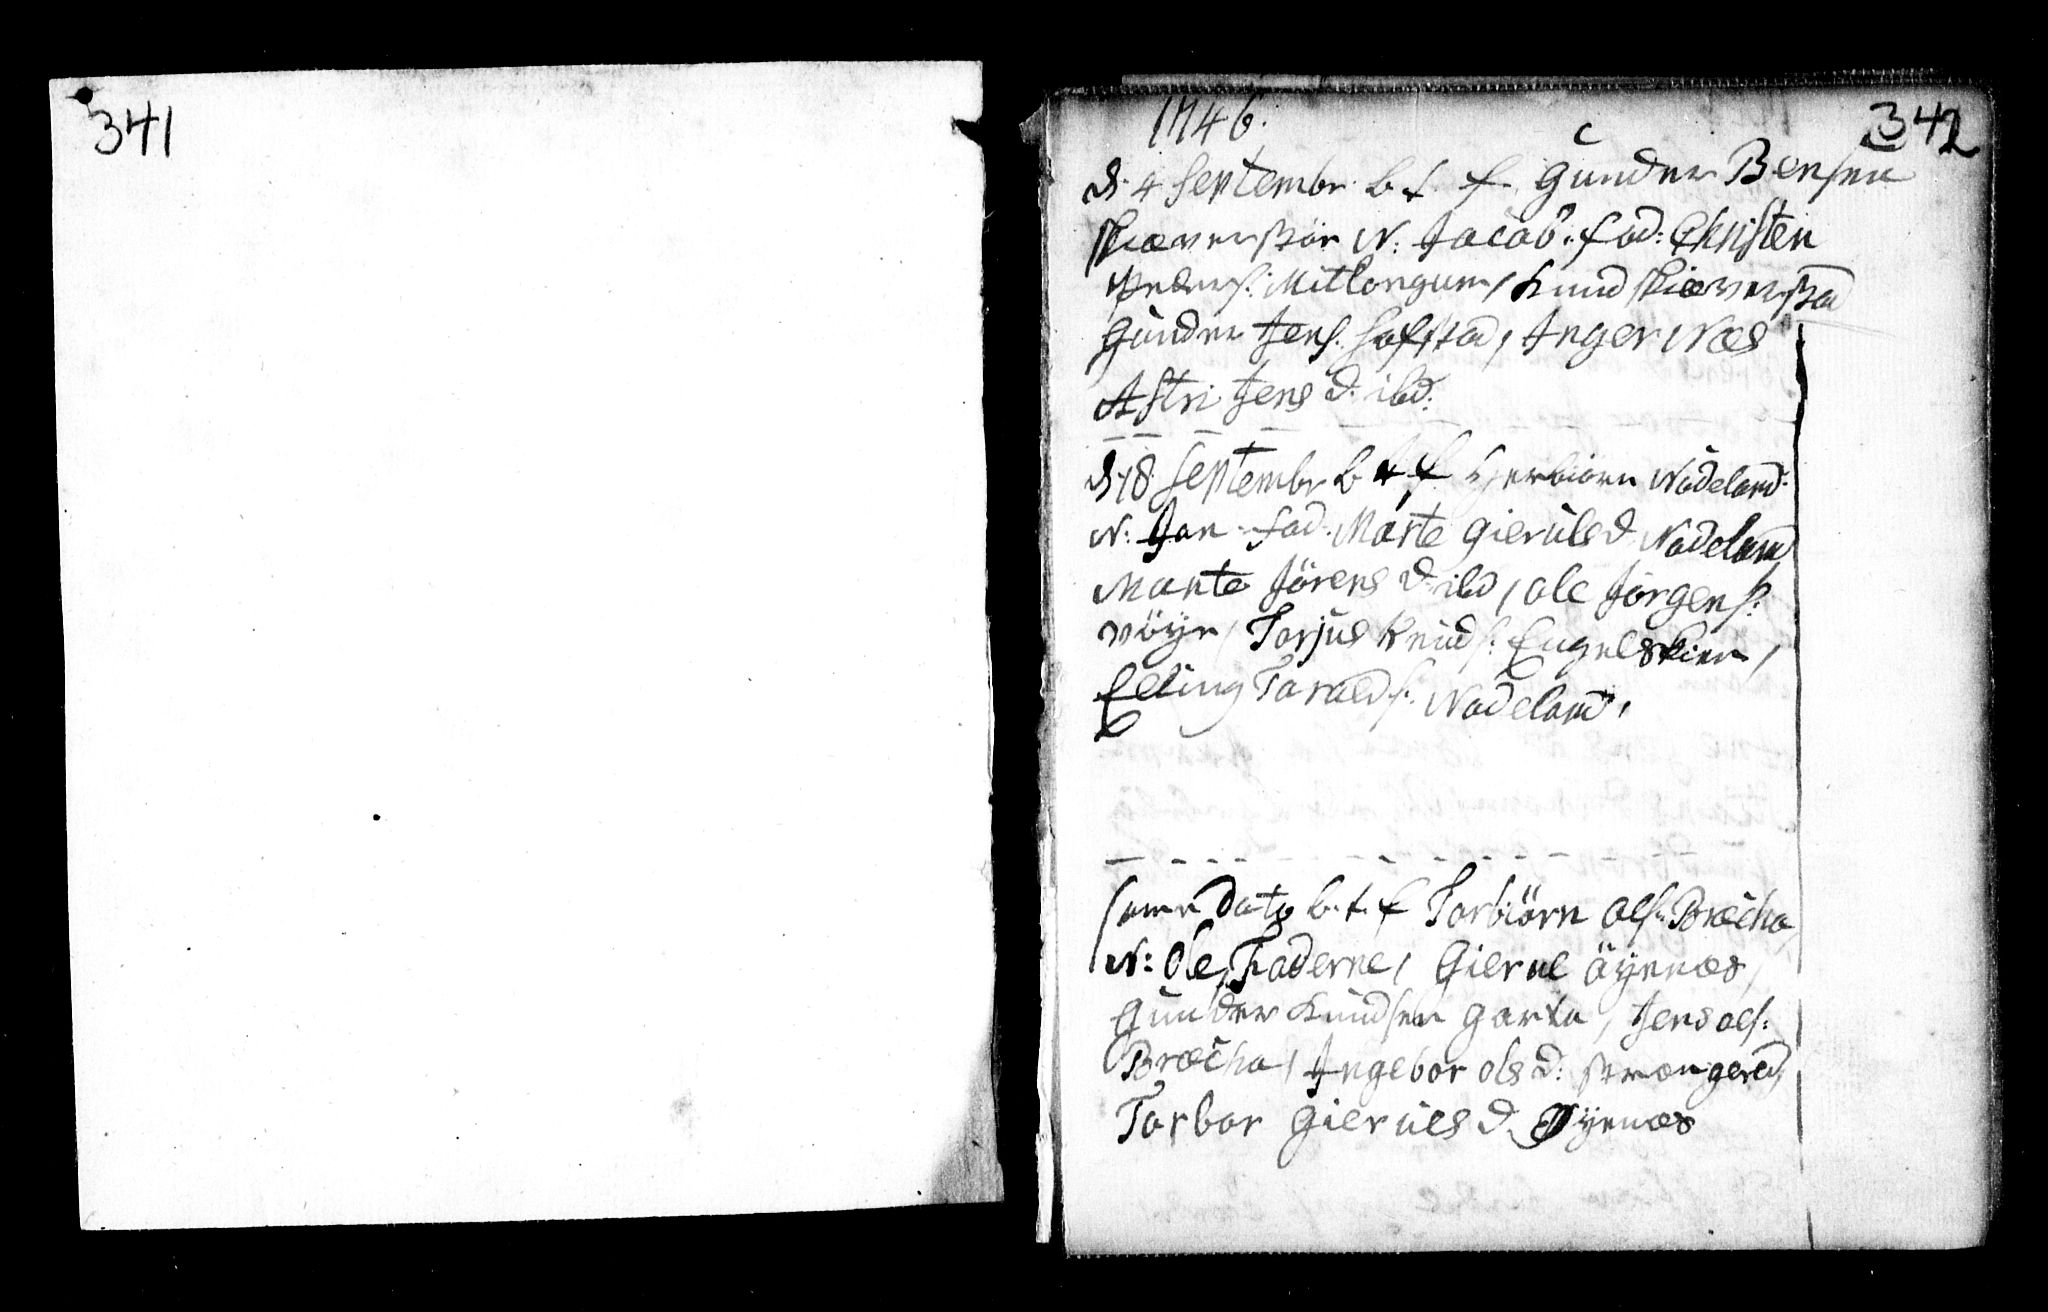 341
342
1746.
d. 4 Septembr b. t. f. Gunder Bensen
skiæverstør N: Jacob. fad: Christen
Peders: Mitlongum / Knud skiæverstad
Gunder Jens. hafstad, Anger Næs
Astri Jens d. ibd:
d. 18 Septembr b t f Herbiørn Nodeland
N: Jon fad. Marte Gieruls d. Nodeland
Marte Jörens d. ibd / ole Jörgens:
vöyn / Torjus Knuds: Engelskien /
Elling Taralds. Nodeland,
Same Dato b. t. f Torbiörn ols: Bræcha
N: Ole, Faderne / Gierul öyenæs
Gunder Knudsen Garta, Jens ols:
Bræcha / Ingebor ols d: strængered
Torbor Gieruls d. Øyenæs